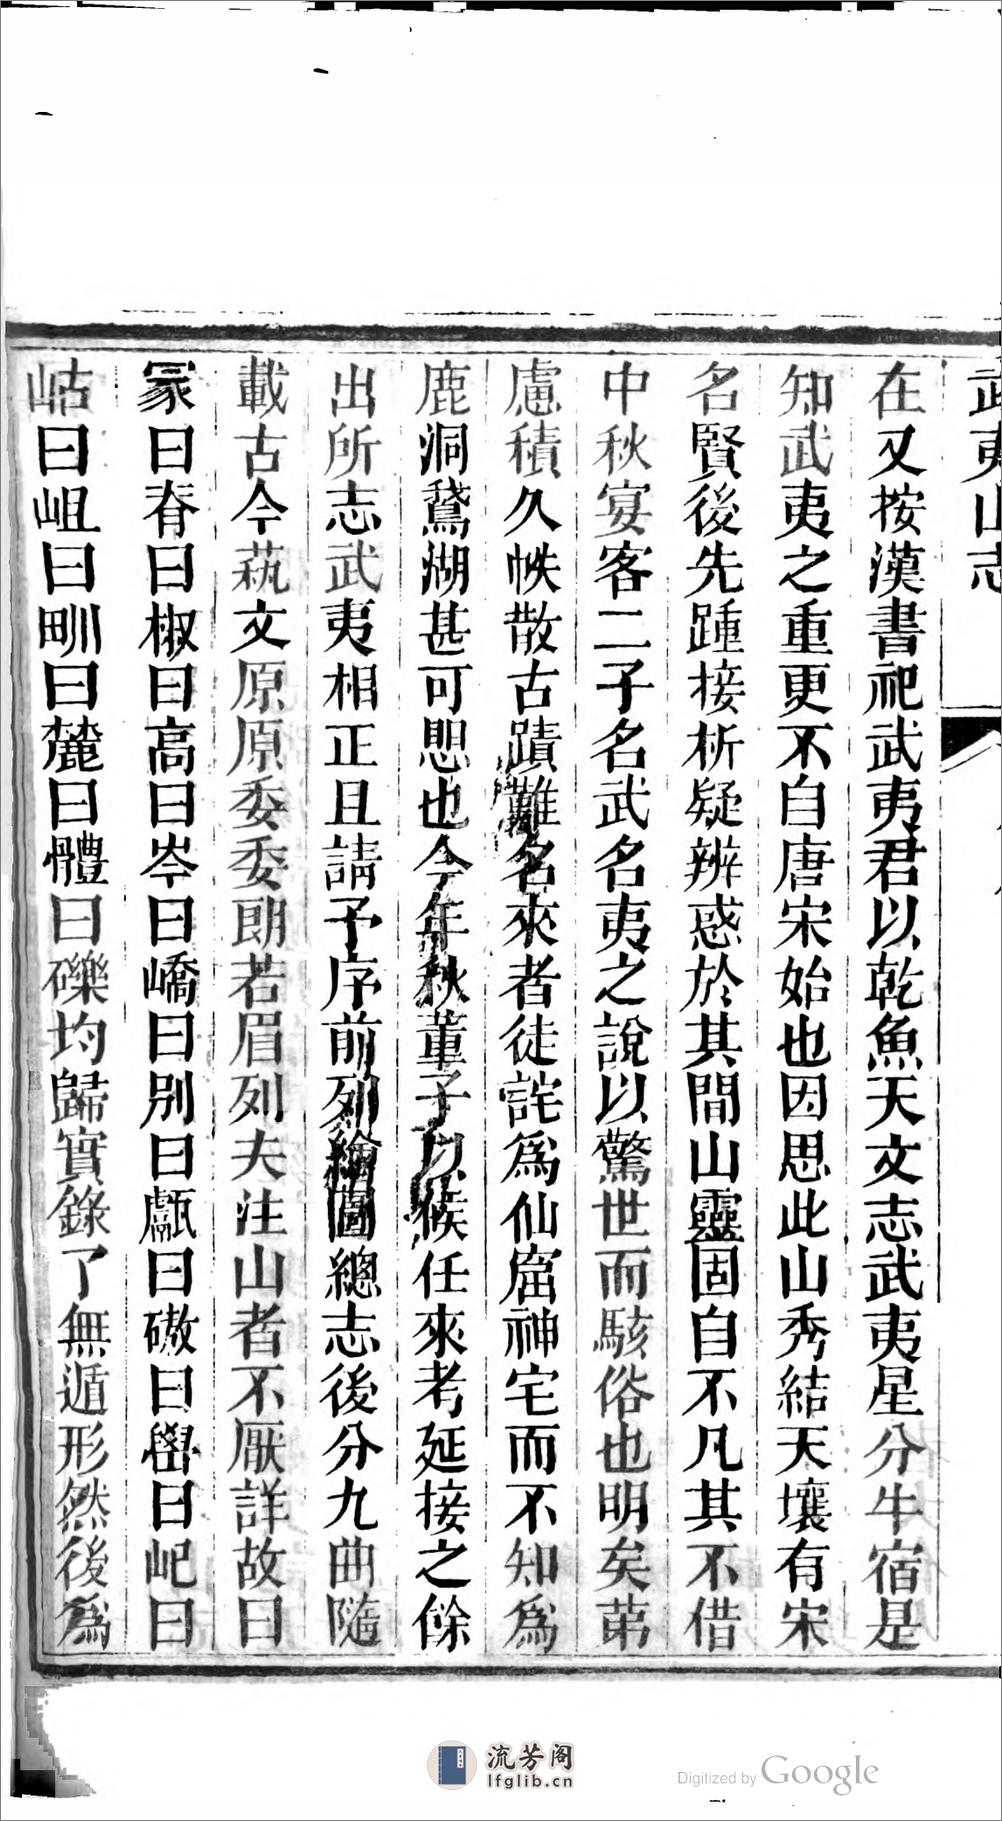 武夷山志
在又按漢書祀武夷君以乾魚天文志武夷星分牛宿是
知武夷之重更不自唐宋始也因思此山秀結天壤有宋
名賢後先踵接析疑辨惑於其間山靈固自不凡其不借
中秋宴客二子名武名夷之說以驚世而駭俗也明矣第
慮積久帙散古蹟難名來者徒詫為仙窟神宅而不知為
鹿洞鵞湖甚可恩也今年秋董子以候任來考延接之餘
出所志武夷相正且請予序前列繪圖總志後分九曲隨
載古今蓺文原原委委朗若眉列夫注山者不厭詳故曰
冢曰脊曰椒曰高曰岑曰嶠曰別曰甗曰磝曰嶨曰屺曰
岵曰岨曰甽曰麓曰體曰礫均歸實錄了無遁形然後為
流芳阁
lfglib.cn
Digitized by Google